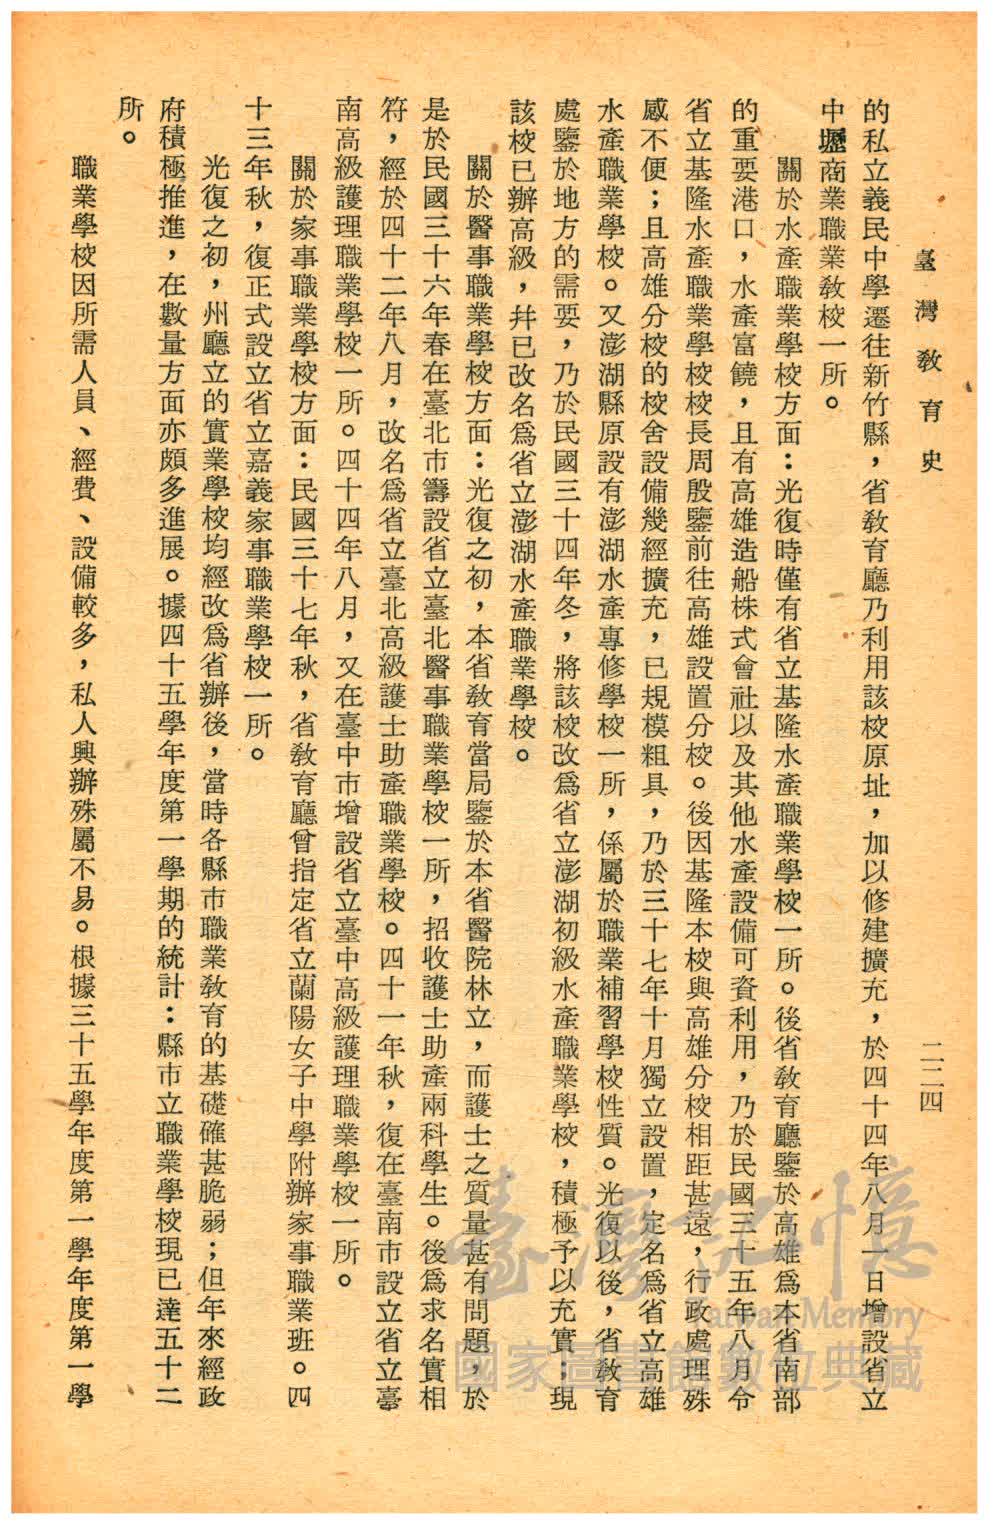 臺灣教育史
二二四
的私立義民中學遷往新竹縣，省教育廳乃利用該校原址，加以修建擴充，於四十四年八月一日增設省立
中壢商業職業教校一所。
關於水產職業學校方面：光復時僅有省立基隆水產職業學校一所。後省教育廳鑒於高雄為本省南部
的重要港口，水產富饒，且有高雄造船株式會社以及其他水產設備可資利用，乃於民國三十五年八月令
省立基隆水產職業學校校長周殷鑒前往高雄設置分校。後因基隆本校與高雄分校相距甚遠，行政處理殊
感不便；且高雄分校的校舍設備幾經擴充，已規模粗具，乃於三十七年十月獨立設置，定名為省立高雄
水產職業學校。又澎湖縣原設有澎湖水產專修學校一所，係屬於職業補習學校性質。光復以後，省教育
處鑒於地方的需要，乃於民國三十四年冬，將該校改為省立澎湖初級水產職業學校，積極予以充實；現
該校已辦高級，幷已改名為省立澎湖水產職業學校。
關於醫事職業學校方面：光復之初，本省教育當局鑒於本省醫院林立，而護士之質量甚有問題，於
是於民國三十六年春在臺北市籌設省立臺北醫事職業學校一所，招收護士助產兩科學生。後為求名實相
符，經於四十二年八月，改名為省立臺北高級護士助產職業學校。四十一年秋，復在臺南市設立省立臺
南高級護理職業學校一所。四十四年八月，又在臺中市增設省立臺中高級護理職業學校一所。
關於家事職業學校方面：民國三十七年秋，省教育廳曾指定省立蘭陽女子中學附辦家事職業班。四
十三年秋，復正式設立省立嘉義家事職業學校一所。
光復之初，州廳立的實業學校均經改為省辦後，當時各縣市職業教育的基礎確甚脆弱；但年來經政
府積極推進，在數量方面亦頗多進展。據四十五學年度第一學期的統計：縣市立職業學校現已達五十二
所。
職業學校因所需人員、經費、設備較多，私人興辦殊屬不易。根據三十五學年度第一學年度第一學
臺灣記憶
Taiwan Memory
國家圖書館數位典藏